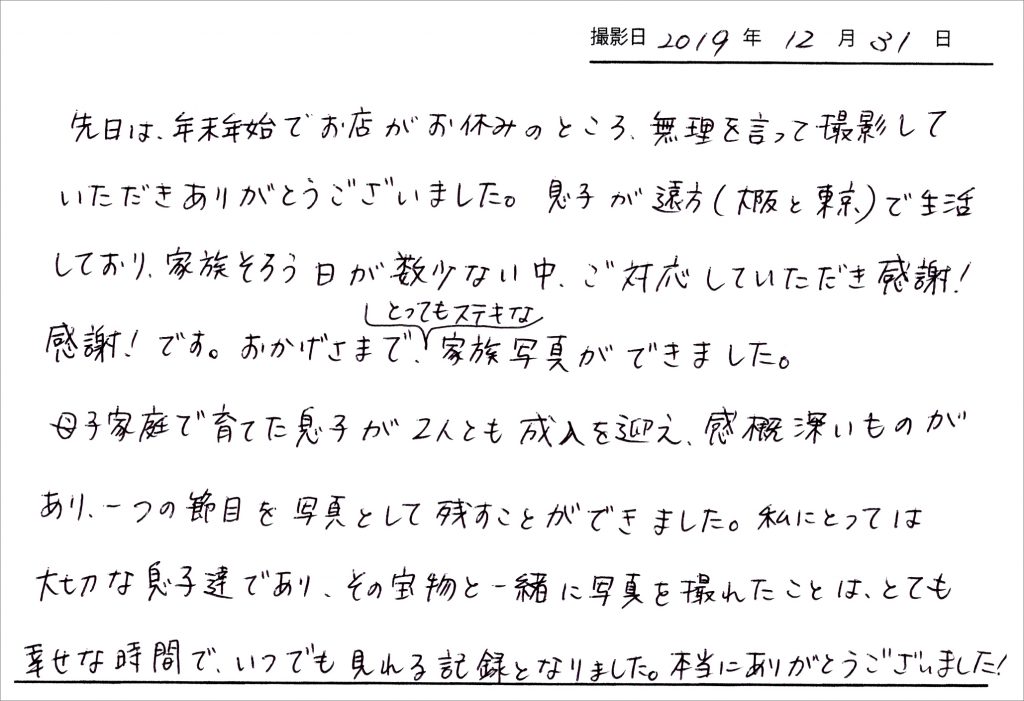 撮影日 2019 年 12 月 31 日
先日は、年末年始でお店がお休みのところ、無理を言って撮影して
いただきありがとうございました。息子が遠方(大阪と東京)で生活
しており、家族そろう日が数少ない中、ご対応していただき感謝!
とってもステキな
感謝!です。おかげさまで、家族写真ができました。
母子家庭で育てた息子が2人とも成人を迎え、感概深いものが
あり、一つの節目を写真として残すことができました。私にとっては
大切な息子達であり、その宝物と一緒に写真を撮れたことは、とても
幸せな時間で、いつでも見れる記録となりました。本当にありがとうございました!